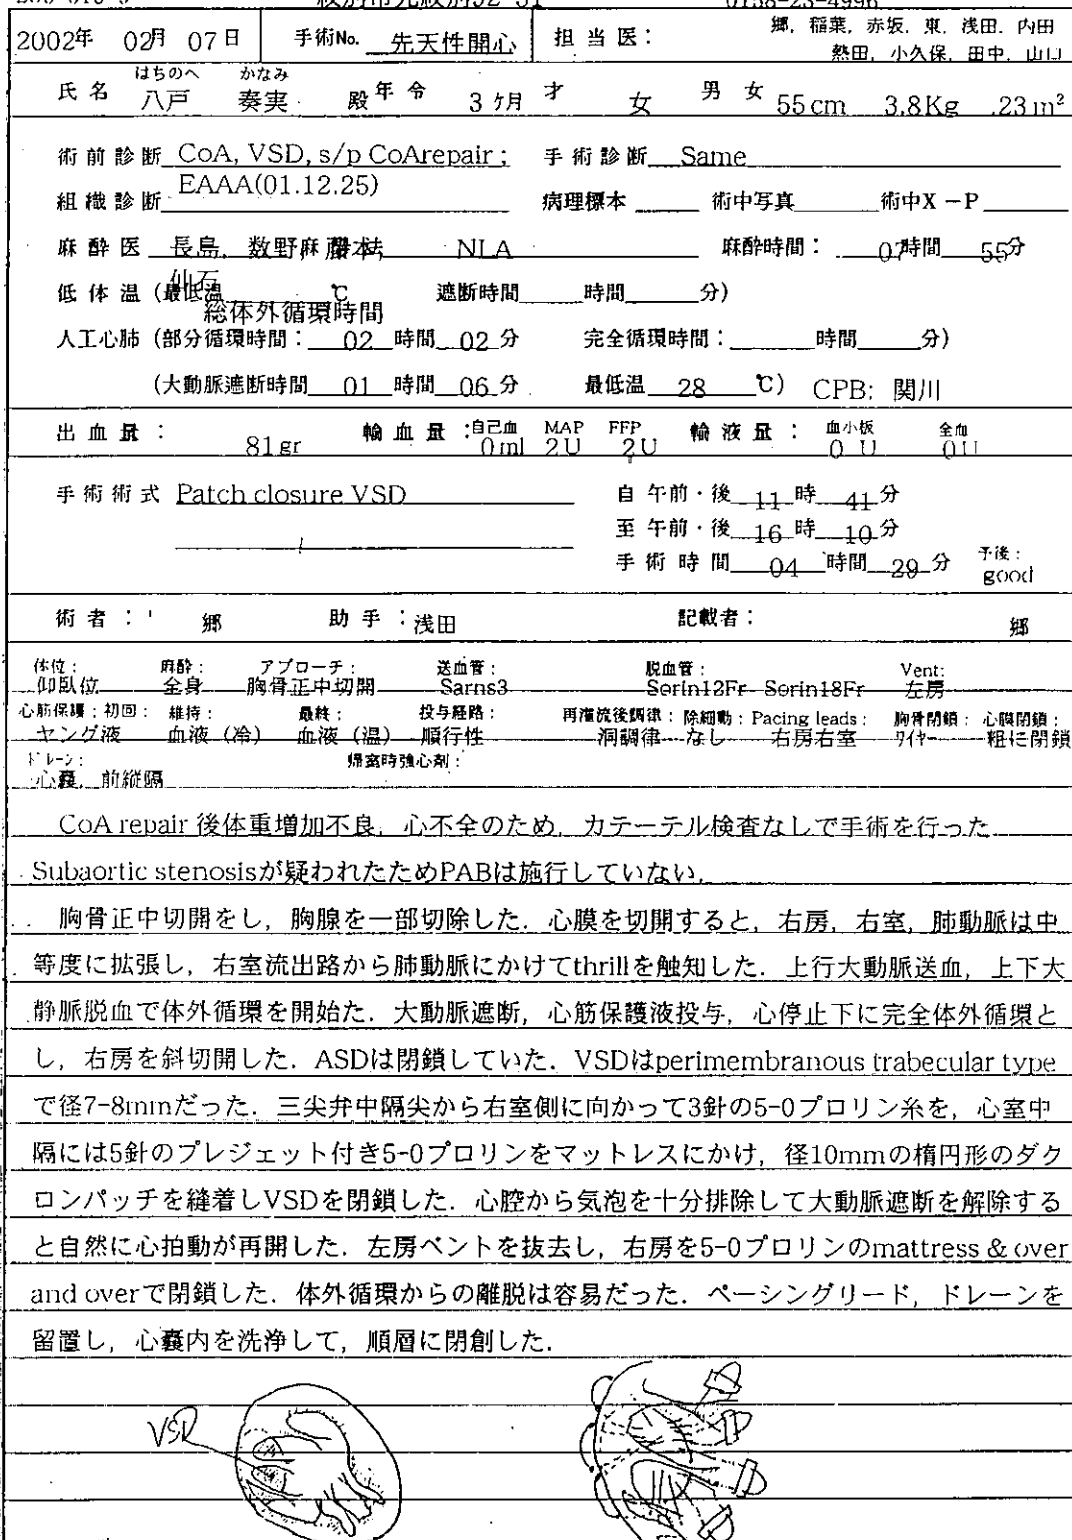 紋別市元紋別52-51 0158-23-4996
2002年 02月 07日 手術No. 先天性開心 担当医: 郷, 稲葉, 赤坂, 東, 浅田, 内田
熱田, 小久保, 田中, 山口
はちのへ かなみ
氏名 八戸 奏実 殿 年令 3ヶ月 才 女 男女 55cm 3.8Kg .23m²
術前診断 CoA, VSD, s/p CoArepair; 手術診断 Same
EAAA(01.12.25)
組織診断 病理標本 術中写真 術中X-P
麻酔医 長島, 数野 藤本, 麻酔法 NLA 麻酔時間: 07時間 55分
仙石
低体温 (最低温 ℃ 遮断時間 時間 分)
総体外循環時間
人工心肺 (部分循環時間: 02 時間 02 分 完全循環時間: 時間 分)
(大動脈遮断時間 01 時間 06 分 最低温 28 ℃) CPB: 関川
出血量: 81gr 輸血量: 自己血 0ml MAP 2U FFP 2U 輸液量: 血小板 0 U 全血 0U
手術術式 Patch closure VSD 自 午前・後 11 時 41 分
至 午前・後 16 時 10 分
手術時間 04 時間 29 分 予後: good
術者: 郷 助手: 浅田 記載者: 郷
体位: 麻酔: アプローチ: 送血管: 脱血管: Vent:
仰臥位 全身 胸骨正中切開 Sarns3 Sorin12Fr Sorin18Fr 左房
心筋保護: 初回: 維持: 最終: 投与経路: 再灌流後調律: 除細動: Pacing leads: 胸骨閉鎖: 心膜閉鎖:
ヤング液 血液 (冷) 血液 (温) 順行性 洞調律 なし 右房右室 ワイヤー 粗に閉鎖
ドレーン: 帰室時強心剤:
心嚢, 前縦隔
CoA repair 後体重増加不良, 心不全のため, カテーテル検査なしで手術を行った
Subaortic stenosisが疑われたためPABは施行していない.
胸骨正中切開をし, 胸腺を一部切除した. 心膜を切開すると, 右房, 右室, 肺動脈は中
等度に拡張し, 右室流出路から肺動脈にかけてthrillを触知した. 上行大動脈送血, 上下大
静脈脱血で体外循環を開始た. 大動脈遮断, 心筋保護液投与, 心停止下に完全体外循環と
し, 右房を斜切開した. ASDは閉鎖していた. VSDはperimembranous trabecular type
で径7-8mmだった. 三尖弁中隔尖から右室側に向かって3針の5-0プロリン糸を, 心室中
隔には5針のプレジェット付き5-0プロリンをマットレスにかけ, 径10mmの楕円形のダク
ロンパッチを縫着しVSDを閉鎖した. 心腔から気泡を十分排除して大動脈遮断を解除する
と自然に心拍動が再開した. 左房ベントを抜去し, 右房を5-0プロリンのmattress & over
and overで閉鎖した. 体外循環からの離脱は容易だった. ペーシングリード, ドレーンを
留置し, 心嚢内を洗浄して, 順層に閉創した.
VSD